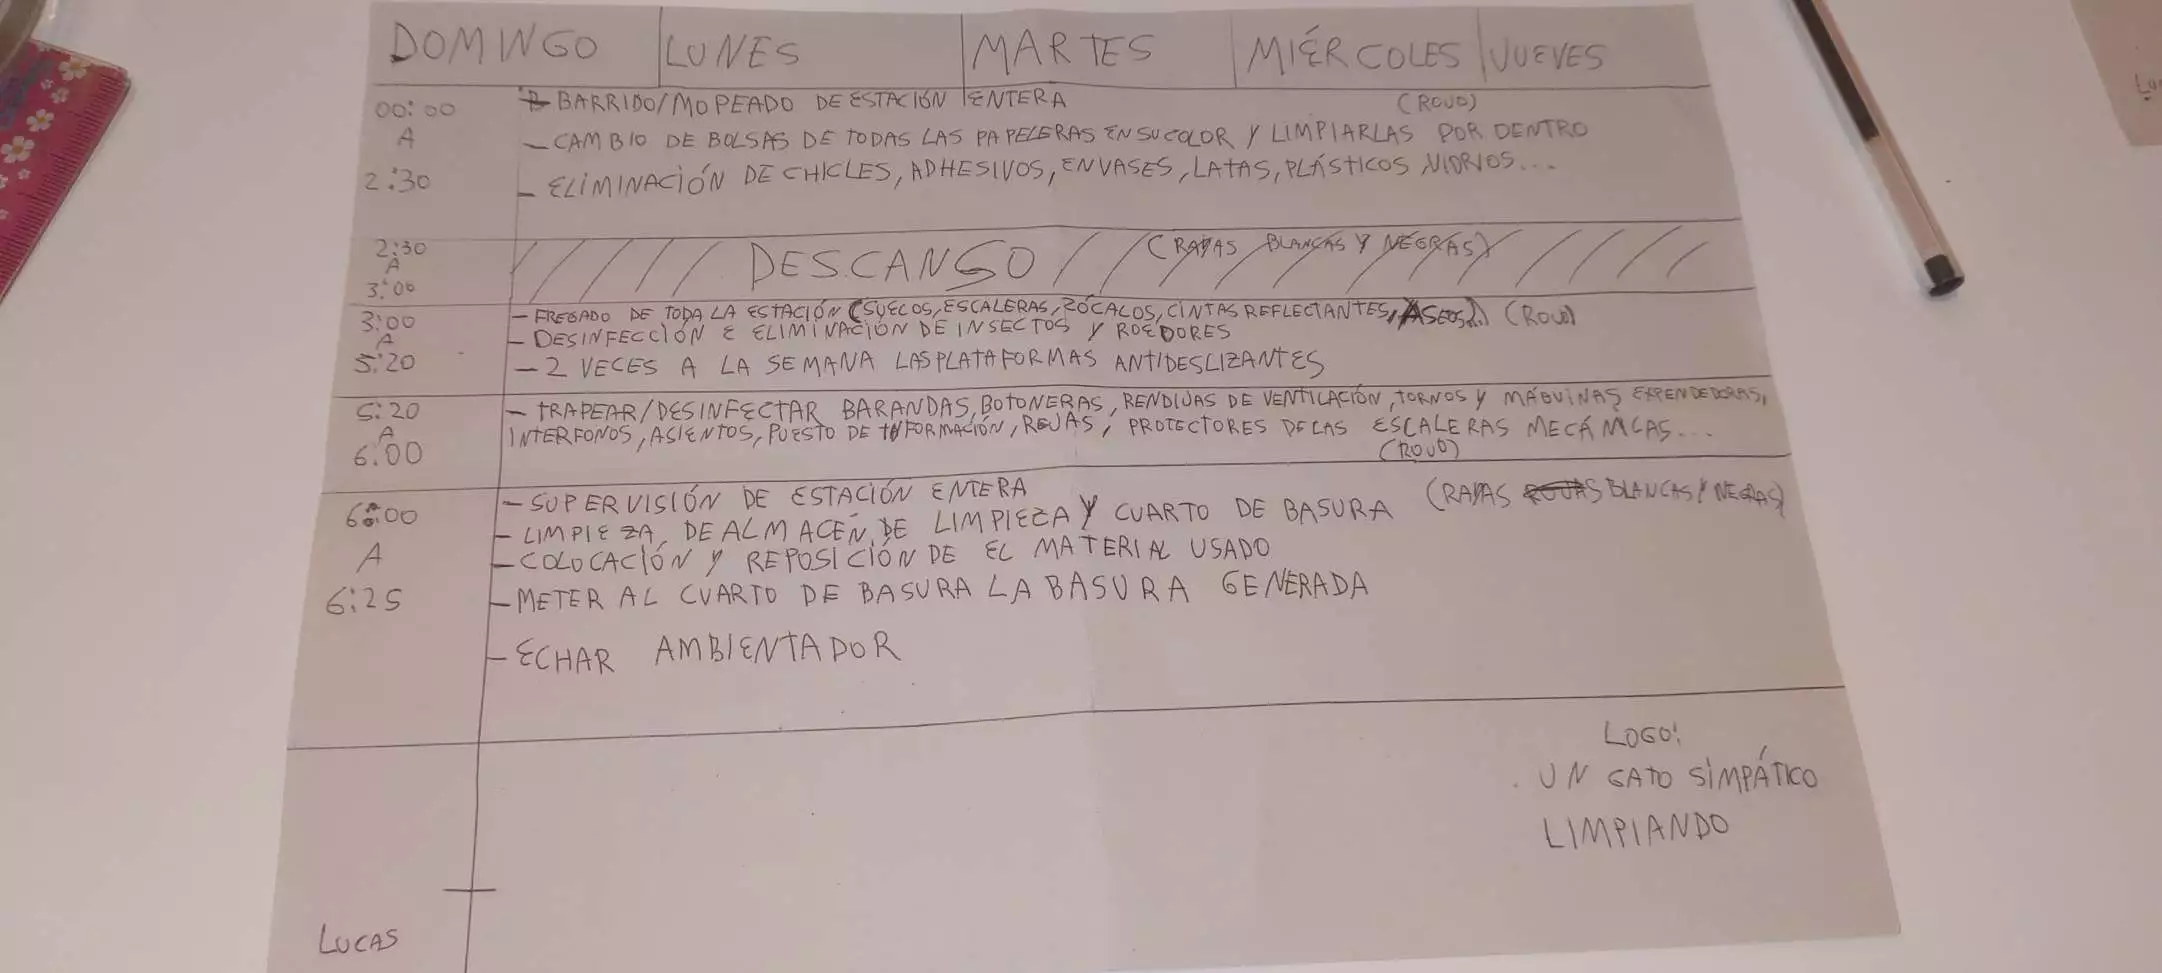 DOMINGO LUNES MARTES MIÉRCOLES JUEVES
00:00
A
2:30
BARRIDO/MOPEADO DE ESTACIÓN ENTERA (ROJO)
- CAMBIO DE BOLSAS DE TODAS LAS PAPELERAS EN SU COLOR Y LIMPIARLAS POR DENTRO
- ELIMINACIÓN DE CHICLES, ADHESIVOS, ENVASES, LATAS, PLÁSTICOS VIDRIOS...
2:30
A
3:00
DESCANSO (RAYAS BLANCAS Y NEGRAS)
3:00
A
5:20
- FREGADO DE TODA LA ESTACIÓN (SUECOS, ESCALERAS, ZÓCALOS, CINTAS REFLECTANTES, ASEOS..) (ROJO)
- DESINFECCIÓN E ELIMINACIÓN DE INSECTOS Y ROEDORES
- 2 VECES A LA SEMANA LAS PLATAFORMAS ANTIDESLIZANTES
5:20
A
6:00
- TRAPEAR/DESINFECTAR BARANDAS, BOTONERAS, RENDIJAS DE VENTILACIÓN, TORNOS Y MÁQUINAS EXPENDEDORAS,
INTERFONOS, ASIENTOS, PUESTO DE INFORMACIÓN, REJAS, PROTECTORES DE LAS ESCALERAS MECÁNICAS...
(ROJO)
6:00
A
6:25
- SUPERVISIÓN DE ESTACIÓN ENTERA (RAYAS BLANCAS Y NEGRAS)
- LIMPIEZA, DE ALMACÉN DE LIMPIEZA Y CUARTO DE BASURA
- COLOCACIÓN Y REPOSICIÓN DE EL MATERIAL USADO
- METER AL CUARTO DE BASURA LA BASURA GENERADA
- ECHAR AMBIENTADOR
LOGO:
UN GATO SIMPÁTICO
LIMPIANDO
LUCAS